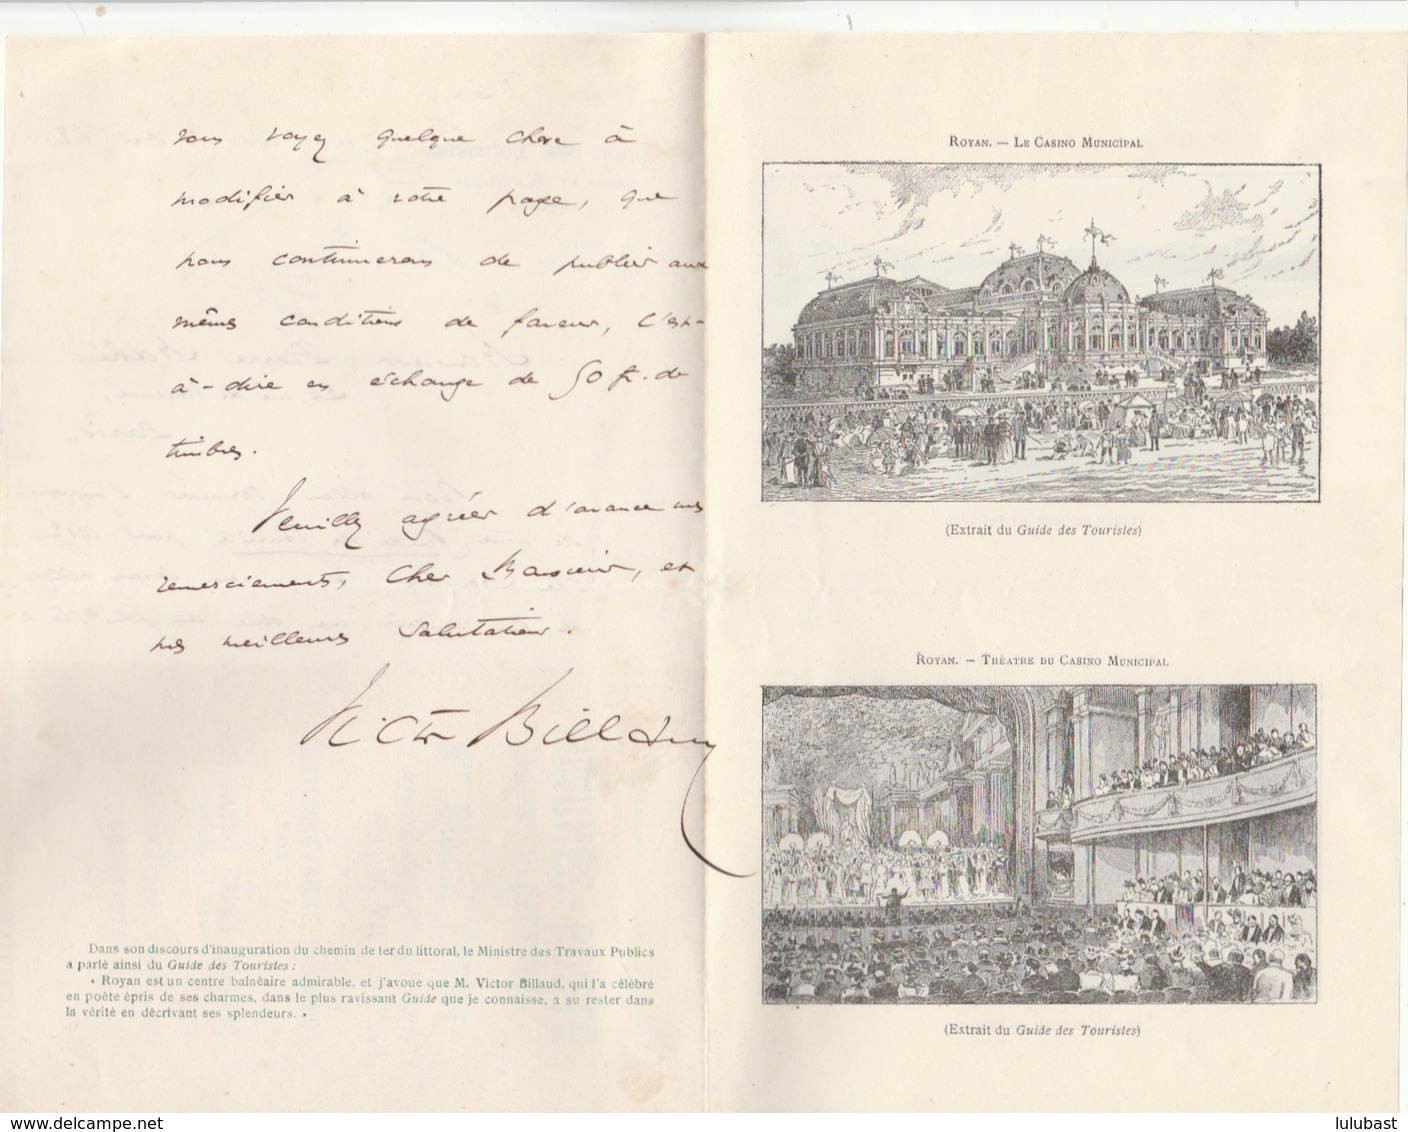 vous voyez quelque chose à
modifier à votre page, que
nous continuerons de publier aux
mêmes conditions de faveur, c'est-
à-dire en échange de 50 fr. de
timbres.
Veuillez agréer d'avance mes
remerciements, cher Monsieur, et
mes meilleures salutations.
Victor Billaud
Dans son discours d'inauguration du chemin de fer du littoral, le Ministre des Travaux Publics
a parlé ainsi du Guide des Touristes :
« Royan est un centre balnéaire admirable, et j'avoue que M. Victor Billaud, qui l'a célébré
en poète épris de ses charmes, dans le plus ravissant Guide que je connaisse, a su rester dans
la vérité en décrivant ses splendeurs. »
ROYAN. — LE CASINO MUNICIPAL
(Extrait du Guide des Touristes)
ROYAN. — THÉATRE DU CASINO MUNICIPAL
(Extrait du Guide des Touristes)
www.delcampe.net
lulubast